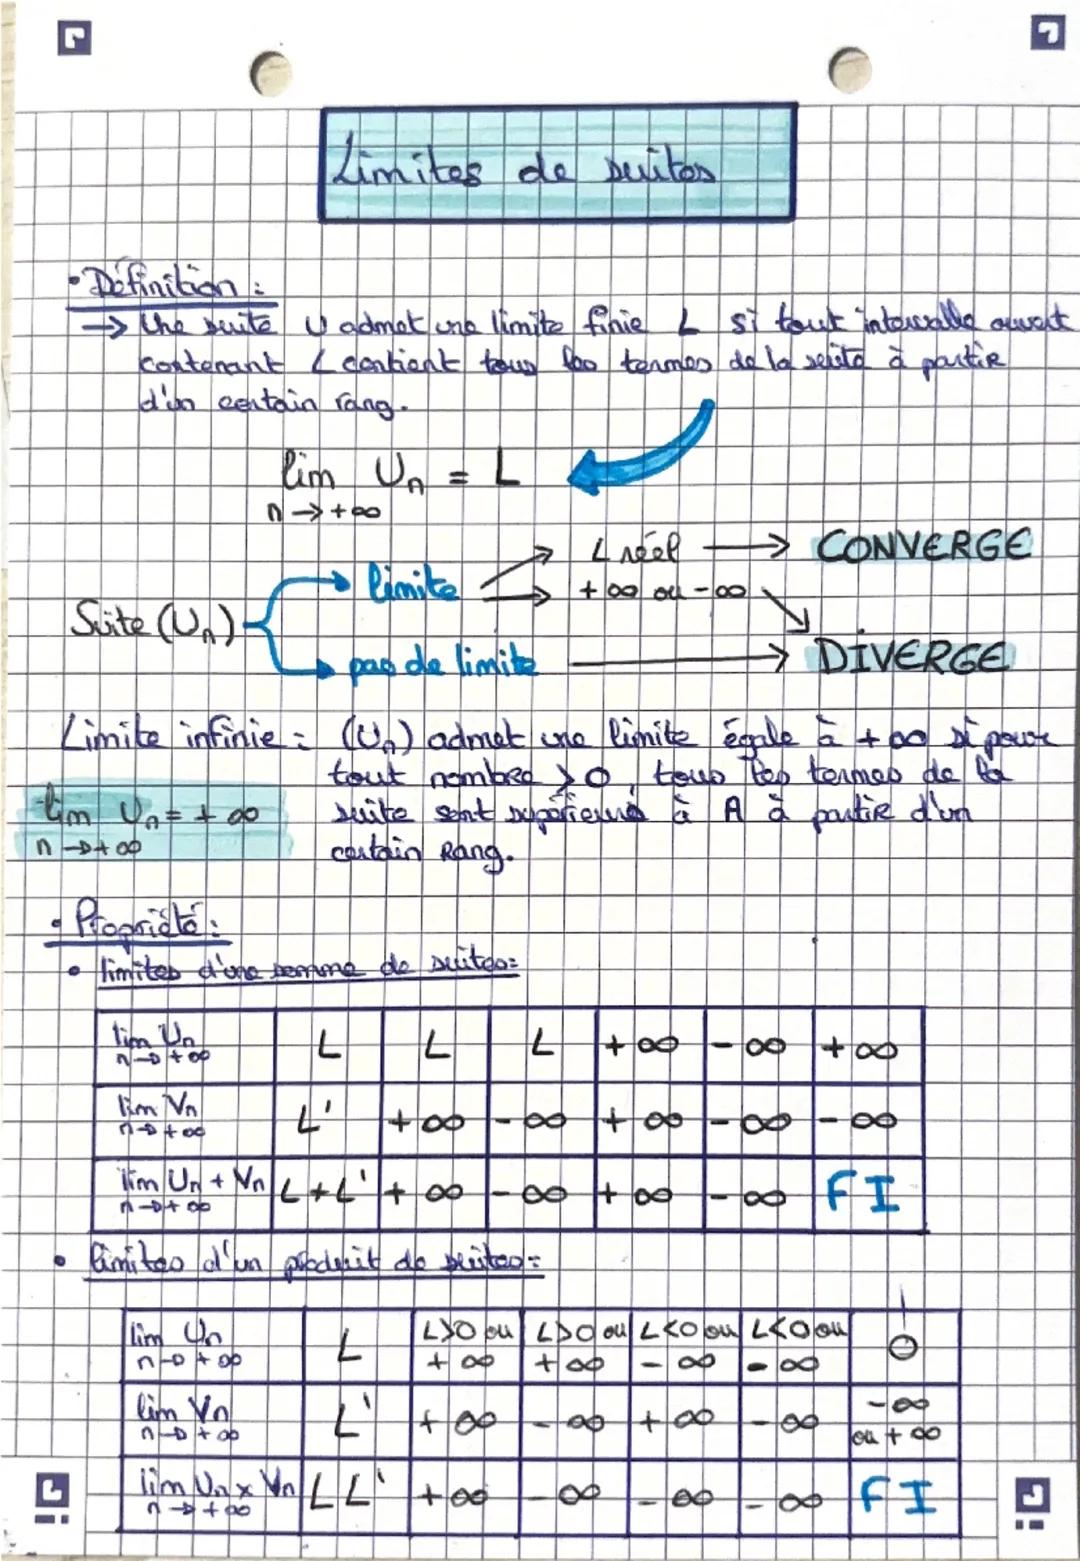 Limites de suites
• Définition :
→ Une suite U admet une limite finie L si tout intervalle ouvert
contenant L contient tous les termes de la suite à partir
d'un certain rang.
lim Un = L
n → +∞
L réel → CONVERGE
limite
+∞ ou -∞
Suite (Un)
pas de limite → DIVERGE
Limite infinie : (Un) admet une limite égale à +∞ si pour
tout nombre >0, tous les termes de la
lim Un = +∞ suite sont supérieurs à A à partir d'un
n → +∞ certain Rang.
• Propriété :
• limites d'une somme de suites :
lim Un n→+∞ L L L +∞ -∞ +∞
lim Vn n→+∞ L' +∞ -∞ +∞ -∞ -∞
lim Un + Vn n→+∞ L+L' +∞ -∞ +∞ -∞ FI
• limites d'un produit de suites :
lim Un n→+∞ L L>0 ou +∞ L>0 ou +∞ L<0 ou -∞ L<0 ou -∞ 0
lim Vn n→+∞ L' +∞ -∞ +∞ -∞ -∞ ou +∞
lim Un x Vn n→+∞ LL' +∞ -∞ -∞ -∞ FI